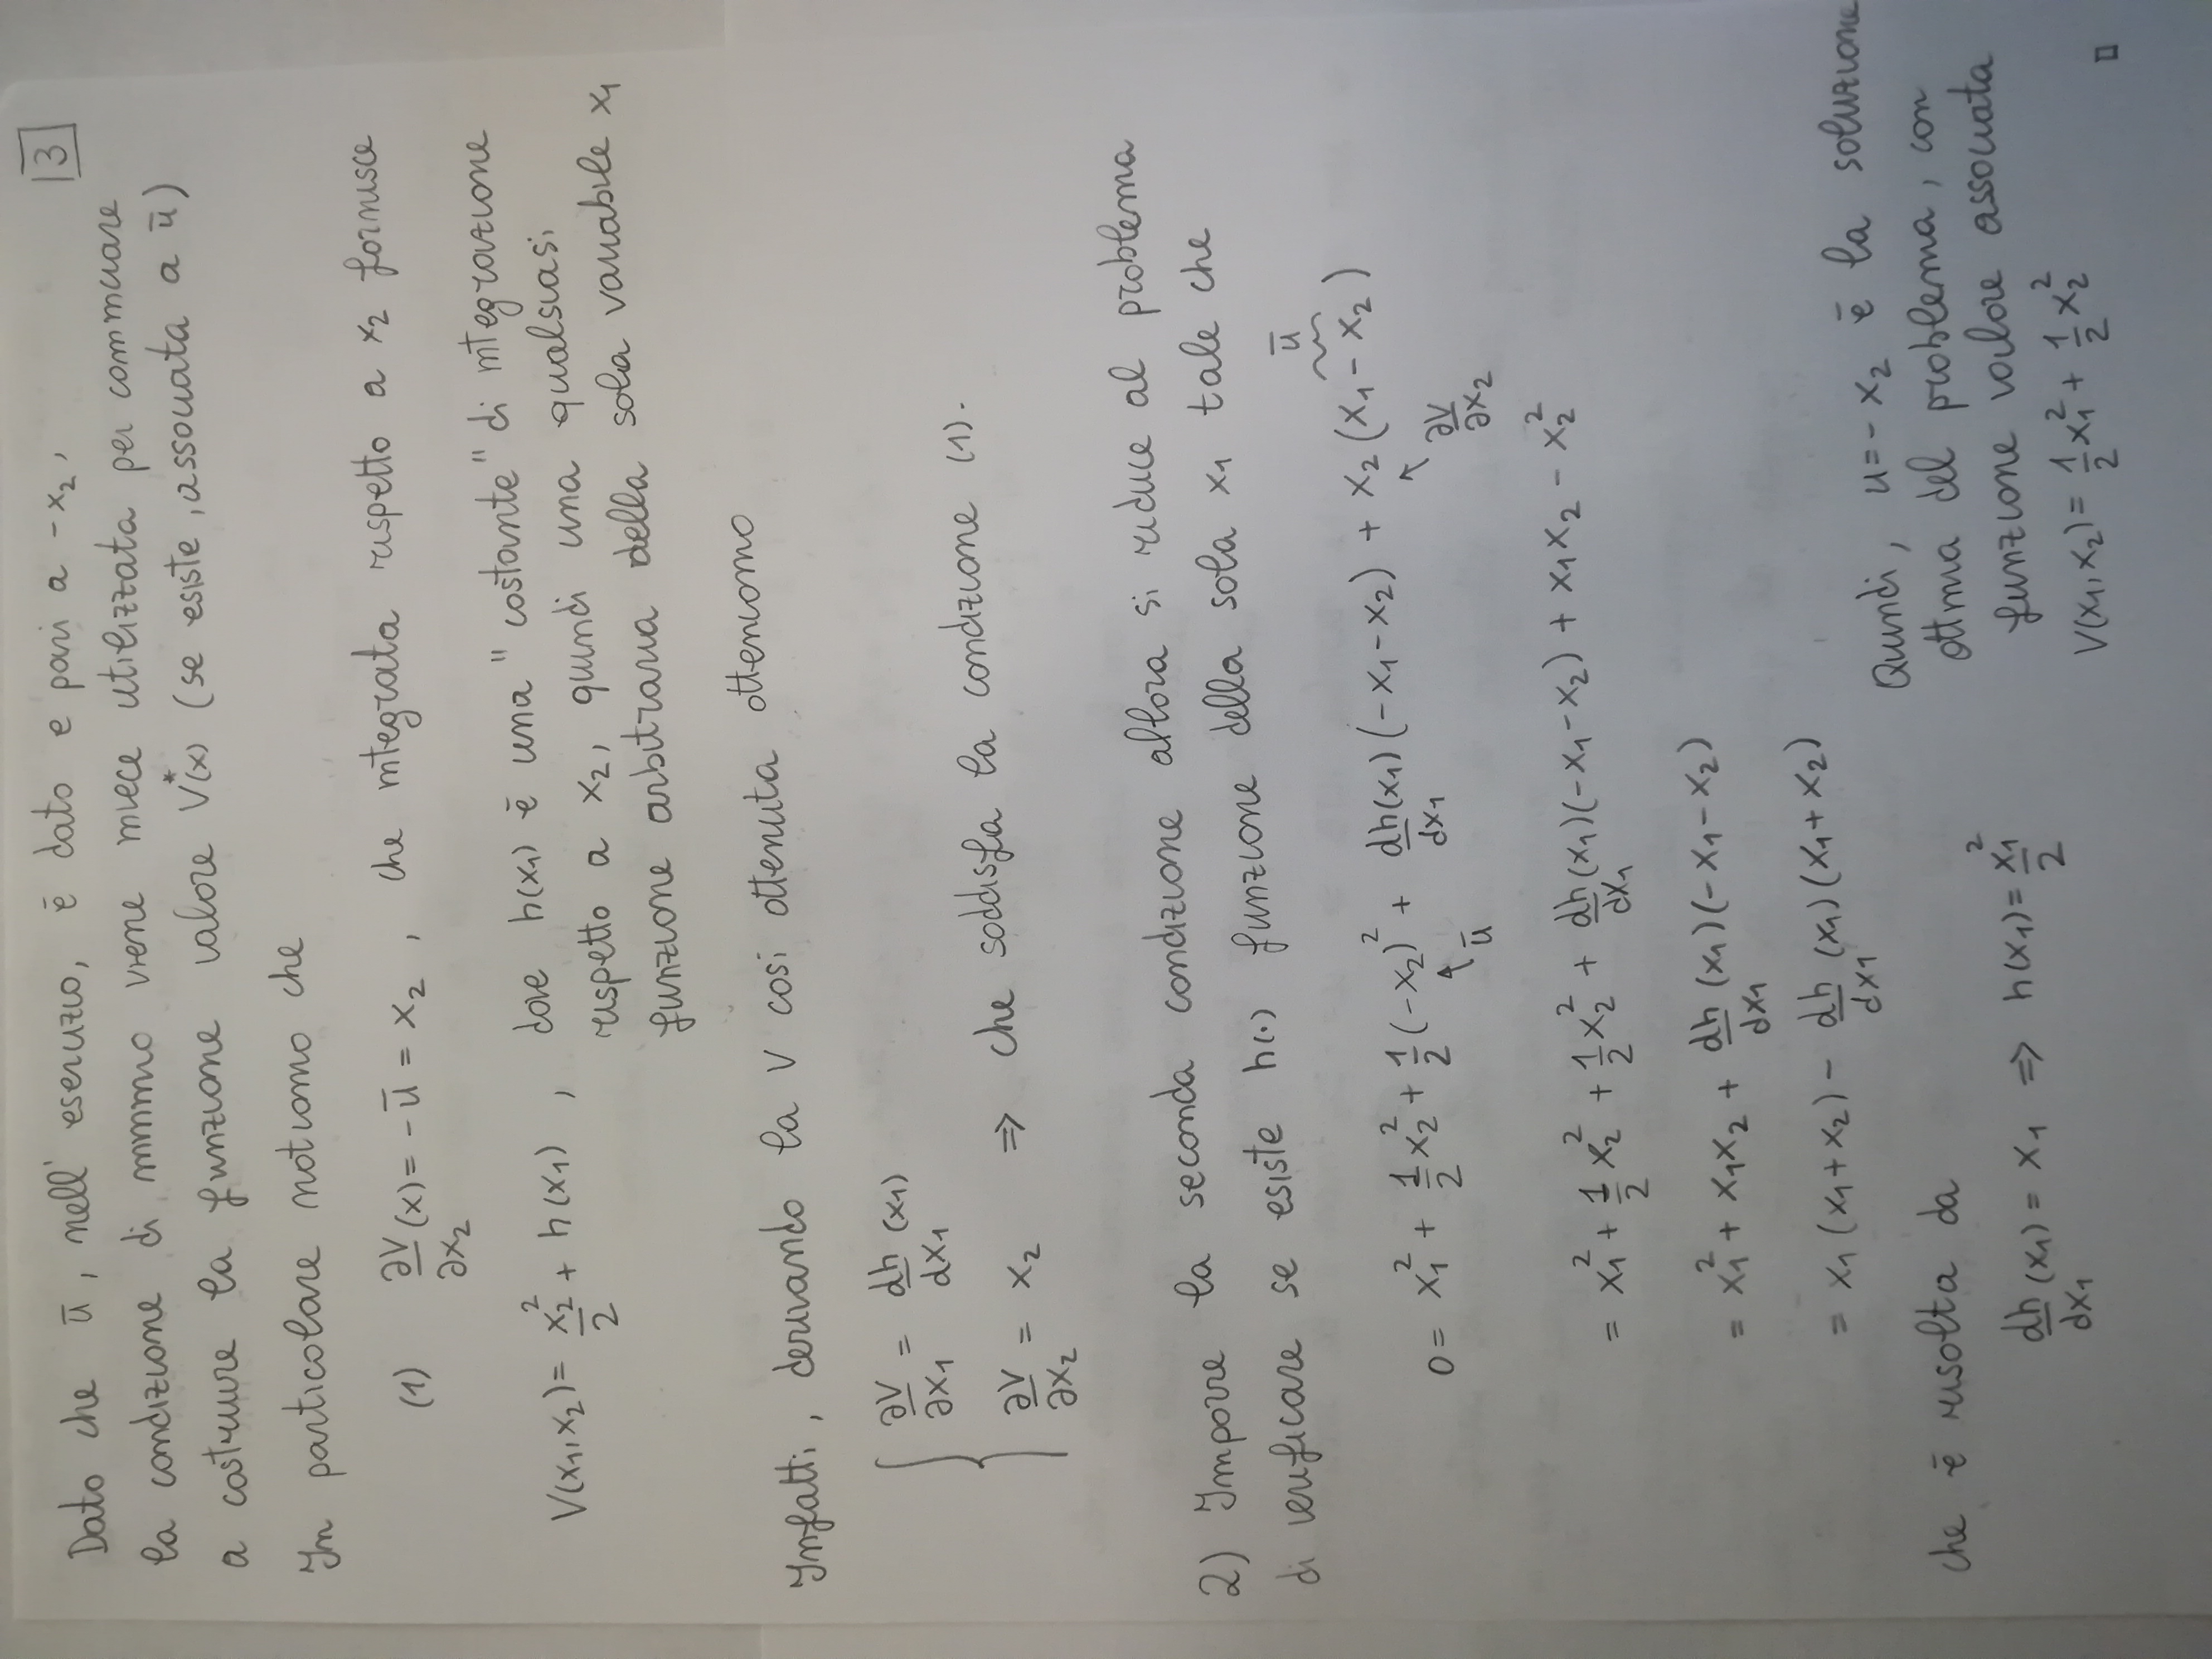 3
Dato che ū, nell'esercizio, è dato e pari a -x₂,
la condizione di minimo viene invece utilizzata per cominciare
a costruire la funzione valore V*(x) (se esiste, associata a ū)
In particolare notiamo che
(1) ∂V/∂x₂ (x) = -ū = x₂ , che integrata rispetto a x₂ fornisce
V(x₁,x₂) = x₂²/2 + h(x₁) , dove h(x₁) è una "costante" di integrazione
rispetto a x₂, quindi una qualsiasi
funzione arbitraria della sola variabile x₁
Infatti, derivando la V così ottenuta otteniamo
∂V/∂x₁ = dh/dx₁ (x₁)
∂V/∂x₂ = x₂ ⇒ che soddisfa la condizione (1).
2) Imporre la seconda condizione allora si riduce al problema
di verificare se esiste h(·) funzione della sola x₁ tale che
ū
0 = x₁² + 1/2 x₂² + 1/2 (-x₂)² + dh/dx₁ (x₁) (-x₁-x₂) + x₂ (x₁ - x₂)
↑ ū ↑ ∂V/∂x₂
= x₁² + 1/2 x₂² + 1/2 x₂² + dh/dx₁ (x₁)(-x₁-x₂) + x₁x₂ - x₂²
= x₁² + x₁x₂ + dh/dx₁ (x₁)(-x₁-x₂)
= x₁ (x₁+x₂) - dh/dx₁ (x₁)(x₁+x₂)
che è risolta da
dh/dx₁ (x₁) = x₁ ⇒ h(x₁) = x₁²/2
Quindi, u = -x₂ è la soluzione
ottima del problema, con
funzione valore associata
V(x₁,x₂) = 1/2 x₁² + 1/2 x₂²
□